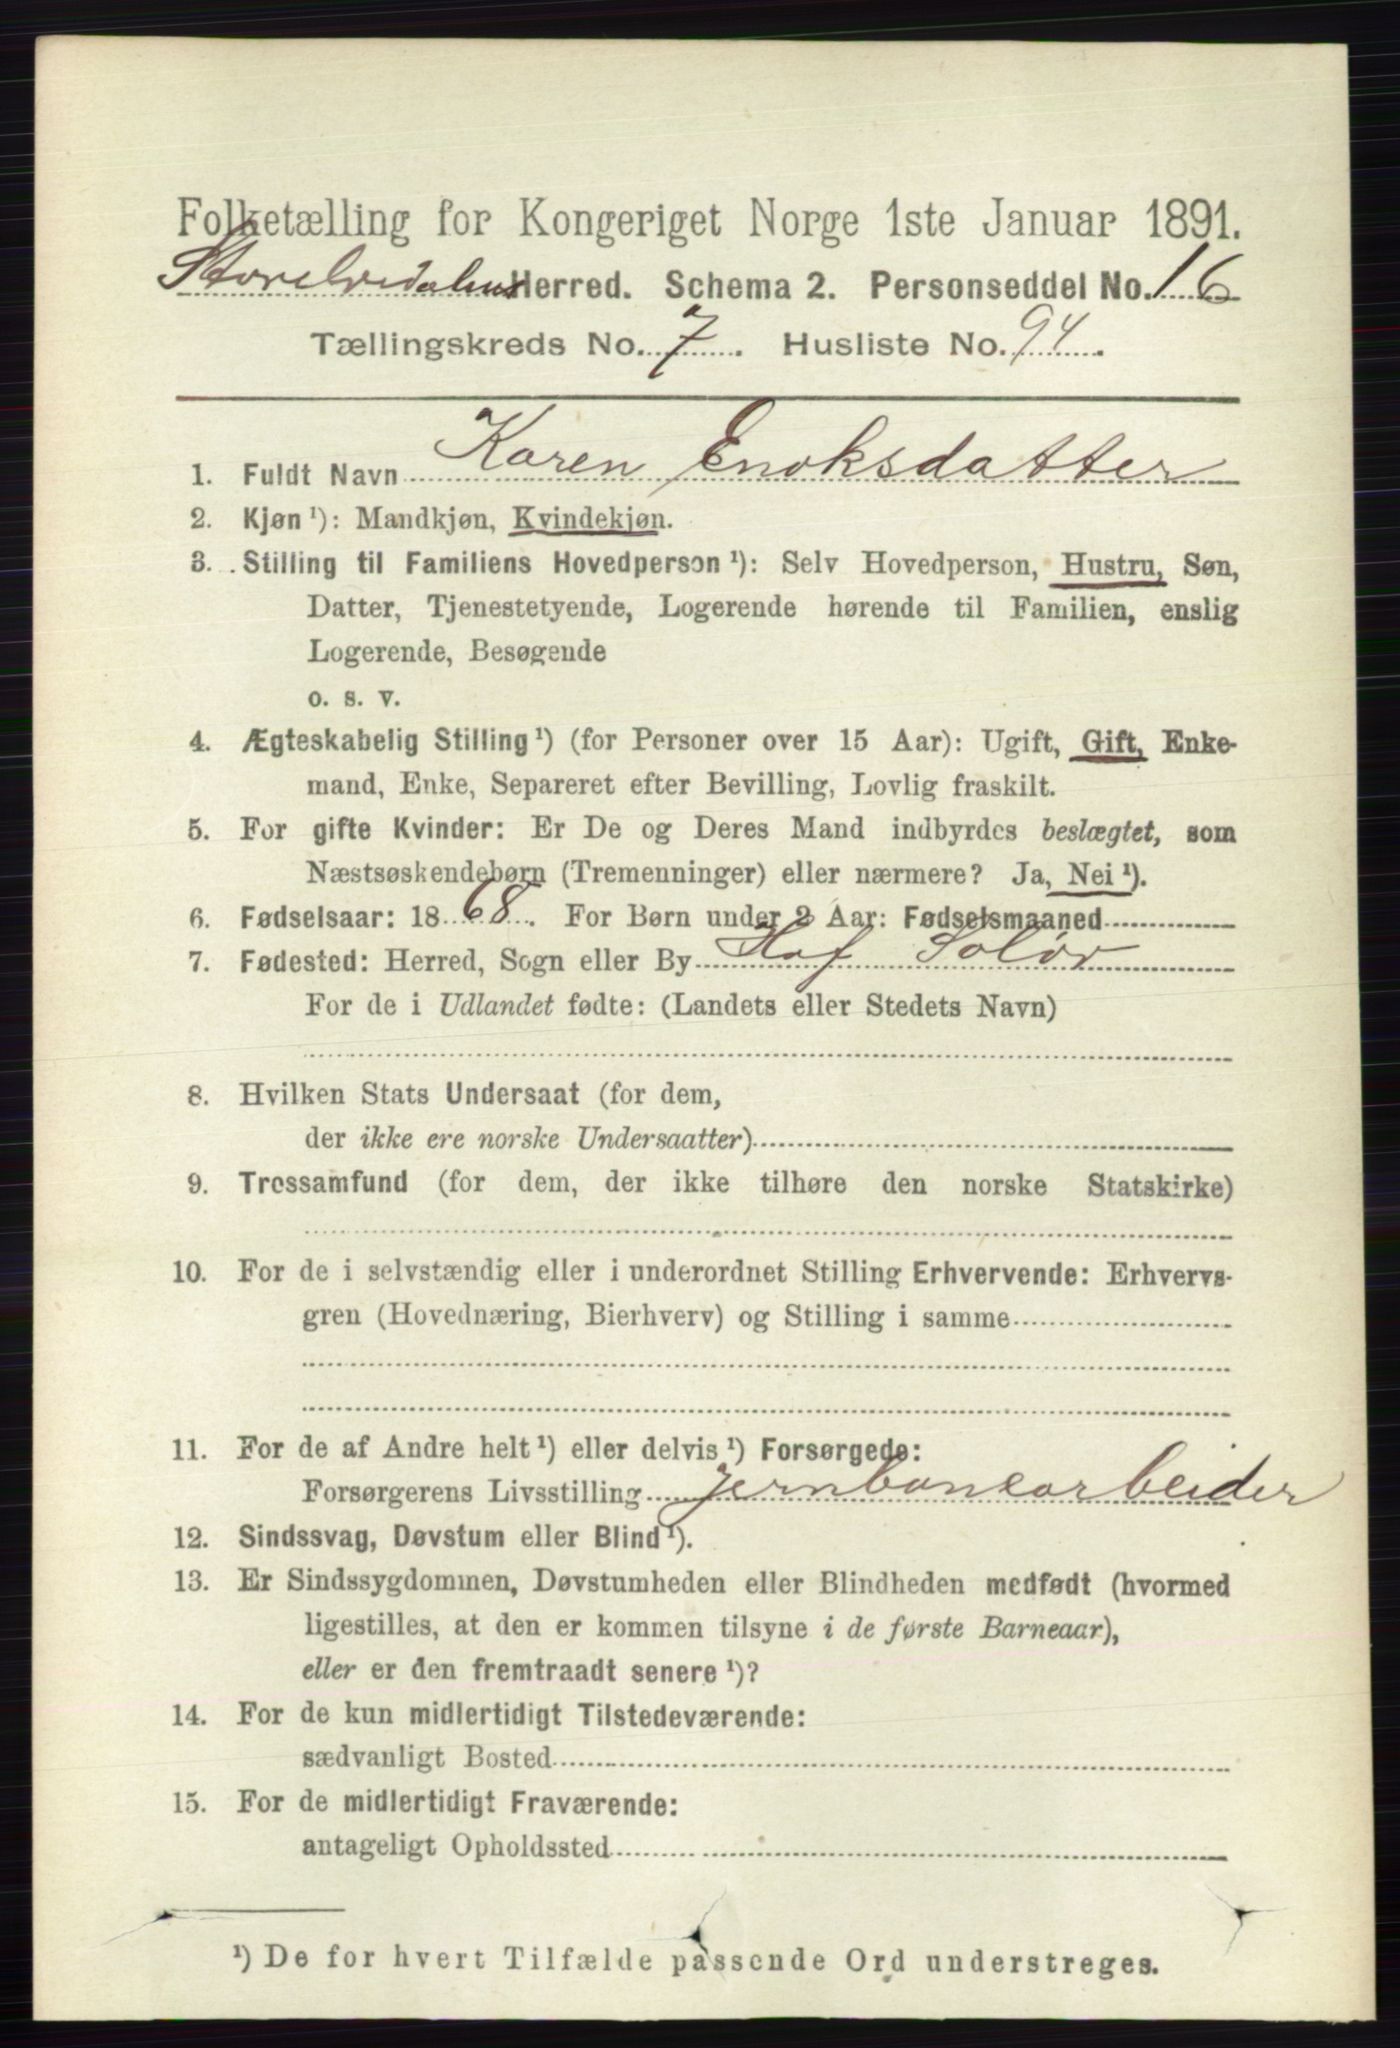 Folketælling for Kongeriget Norge 1ste Januar 1891.
Storelvedalens Herred. Schema 2. Personseddel No. 16
Tællingskreds No. 7. Husliste No. 94.
1. Fuldt Navn Karen Enoksdatter
2. Kjøn ¹): Mandkjøn, Kvindekjøn.
3. Stilling til Familiens Hovedperson ¹): Selv Hovedperson, Hustru, Søn,
Datter, Tjenestetyende, Logerende hørende til Familien, enslig
Logerende, Besøgende
o. s. v.
4. Ægteskabelig Stilling ¹) (for Personer over 15 Aar): Ugift, Gift, Enke-
mand, Enke, Separeret efter Bevilling, Lovlig fraskilt.
5. For gifte Kvinder: Er De og Deres Mand indbyrdes beslægtet, som
Næstsøskendebørn (Tremenninger) eller nærmere? Ja, Nei ¹).
6. Fødselsaar: 1868. For Børn under 2 Aar: Fødselsmaaned
7. Fødested: Herred, Sogn eller By Hof Solør
For de i Udlandet fødte: (Landets eller Stedets Navn)
8. Hvilken Stats Undersaat (for dem,
der ikke ere norske Undersaatter)
9. Trossamfund (for dem, der ikke tilhøre den norske Statskirke)
10. For de i selvstændig eller i underordnet Stilling Erhvervende: Erhvervs-
gren (Hovednæring, Bierhverv) og Stilling i samme
11. For de af Andre helt ¹) eller delvis ¹) Forsørgede:
Forsørgerens Livsstilling jernbanearbeider
12. Sindssvag, Døvstum eller Blind ¹).
13. Er Sindssygdommen, Døvstumheden eller Blindheden medfødt (hvormed
ligestilles, at den er kommen tilsyne i de første Barneaar),
eller er den fremtraadt senere ¹)?
14. For de kun midlertidigt Tilstedeværende:
sædvanligt Bosted
15. For de midlertidigt Fraværende:
antageligt Opholdssted
¹) De for hvert Tilfælde passende Ord understreges.